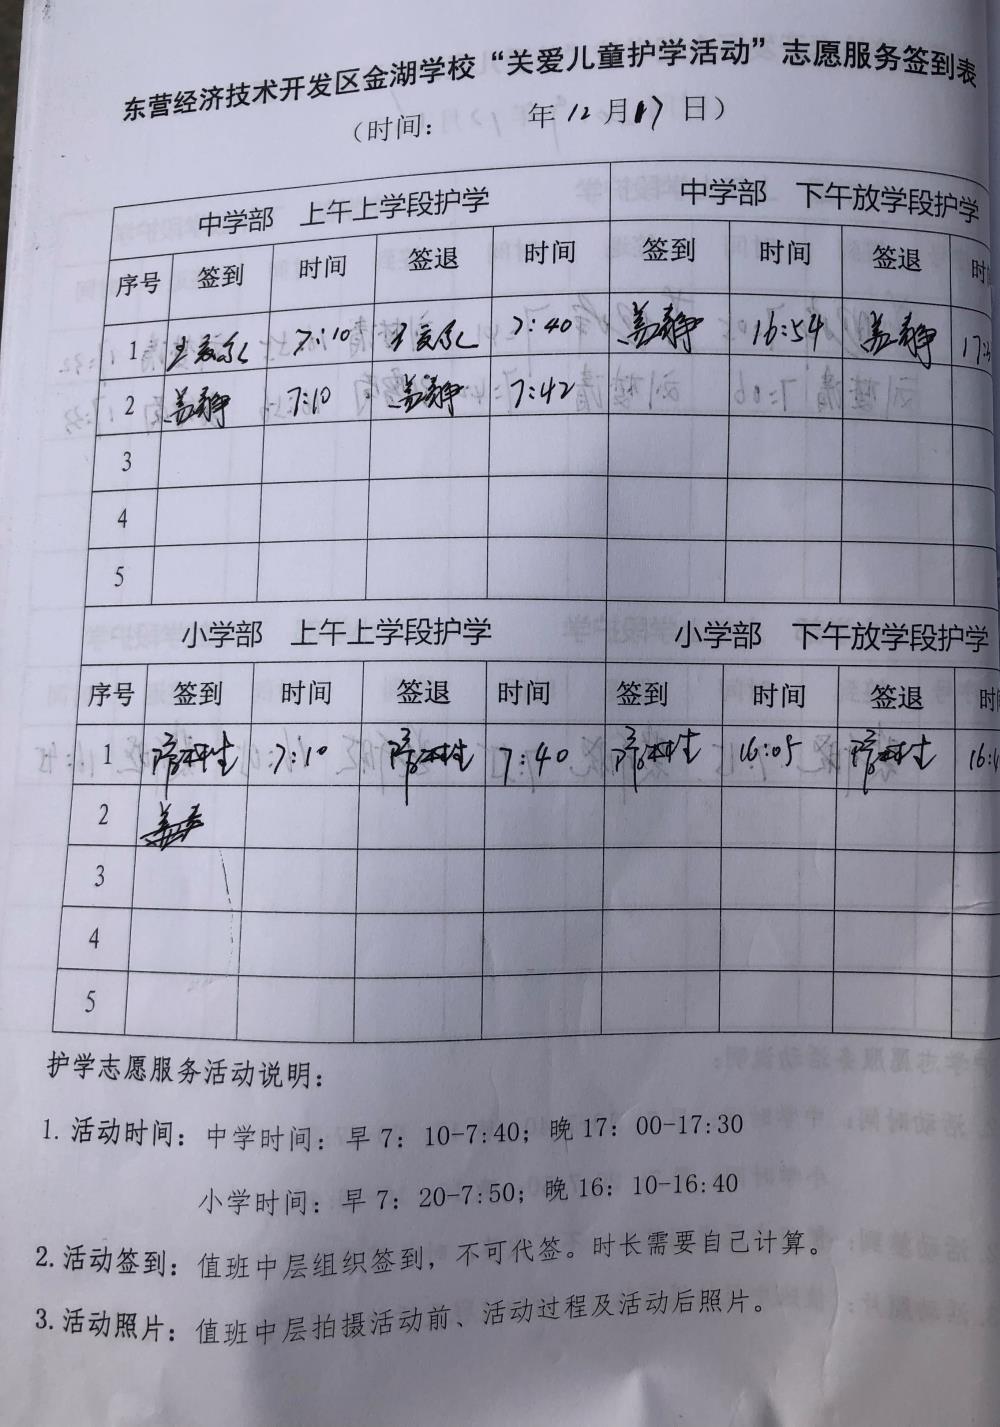 东营经济技术开发区金湖学校“关爱儿童护学活动”志愿服务签到表
（时间： 年12月17日）
中学部 上午上学段护学 中学部 下午放学段护学
序号 签到 时间 签退 时间 签到 时间 签退 时
1 7:10 7:40 盖静 16:54 盖静 17:
2 盖静 7:10 盖静 7:42
3
4
5
小学部 上午上学段护学 小学部 下午放学段护学
序号 签到 时间 签退 时间 签到 时间 签退 时
1 7:10 7:40 16:05 16:
2
3
4
5
护学志愿服务活动说明：
1. 活动时间：中学时间：早7：10-7:40；晚17：00-17:30
小学时间：早7：20-7:50；晚16：10-16:40
2. 活动签到：值班中层组织签到，不可代签。时长需要自己计算。
3. 活动照片：值班中层拍摄活动前、活动过程及活动后照片。